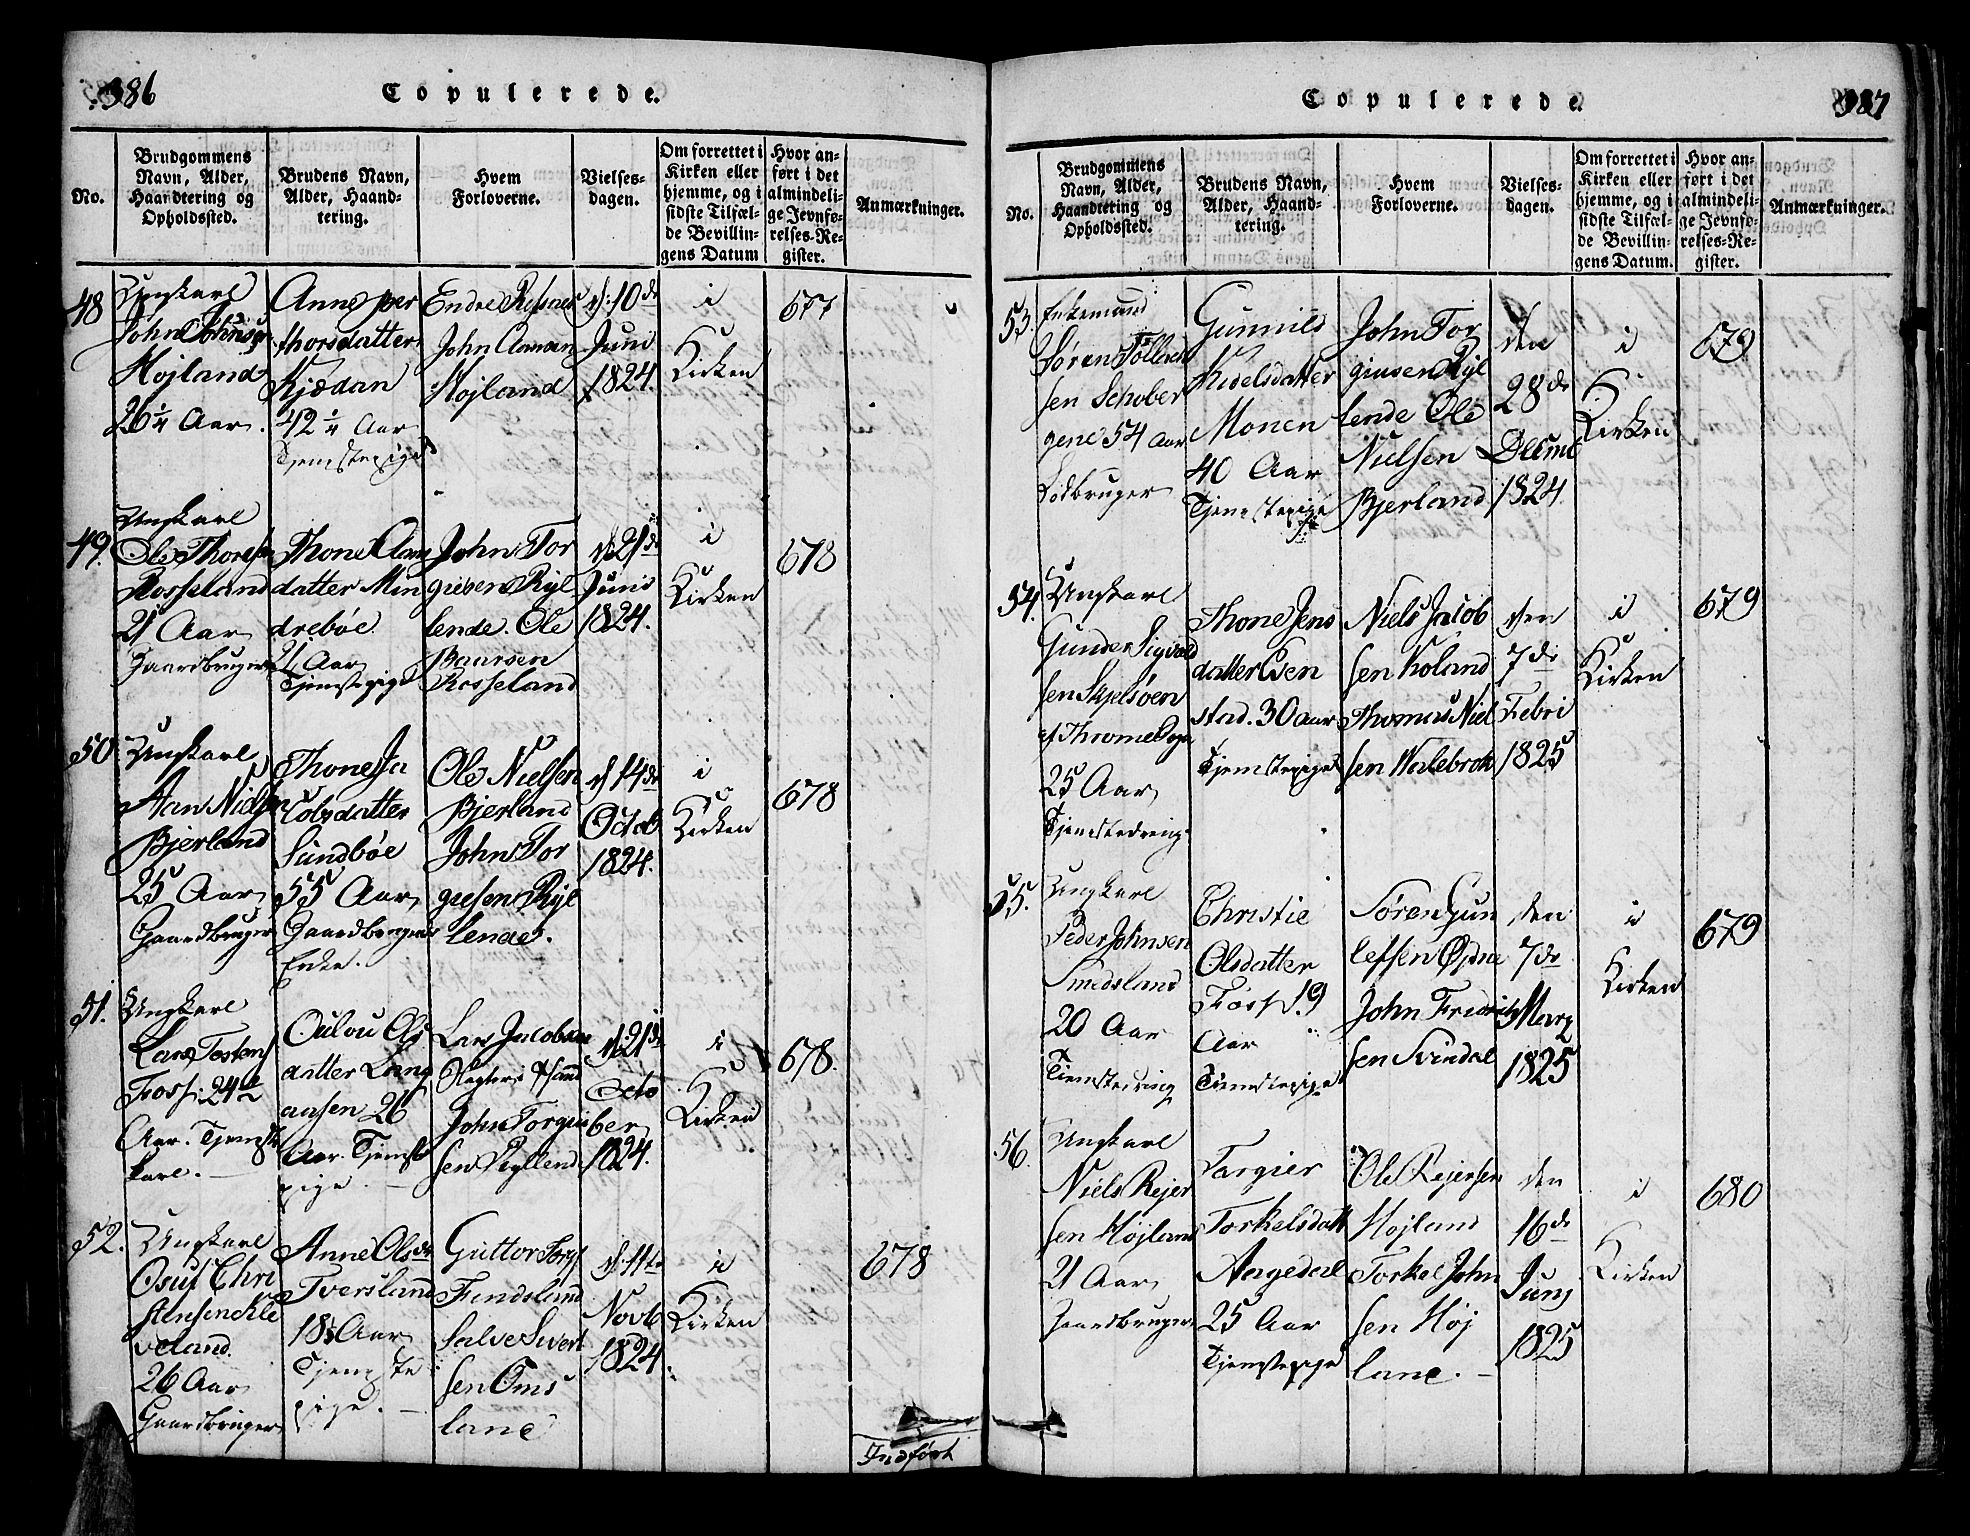 386
Copulerede.
No.
Brudgommens Navn, Alder, Haandtering og Opholdssted.
Brudens Navn, Alder, Haandtering.
Hvem Forloverne.
Vielsesdagen.
Om forrettet i Kirken eller hjemme, og i sidste Tilfælde Bevillingens Datum
Hvor anført i det almindelige Jevnførelses-Register.
Anmærkninger.
48
Ungkarl
John
Højland
26 1/4 Aar.
Anne per
thorsdatter
Kjædan
42 1/4 Aar
Tjenstepige
Endre
John Aanan
Højland
d: 10de
Juni
1824.
i
Kirken
677
49.
Ungkarl
Ole Thore
Rosseland
21 Aar
Gaardbruger
Thone
datter Min
drebøe
21 Aar
Tjenstepige
John Tor
giusen Ryl
lende. Ole
Baarsen
Rosseland
d: 21de
Juni
1824.
i
Kirken
678
50
Ungkarl
Aan Nielsen
Bjerland
25 Aar
Gaardbruger
Thone Ja
cobsdatter
Sundbøe
55 Aar
Gaardbrugers
Enke.
Ole Nielsen
Bjerland
John Tor
giusen Ryl
lende.
d 14de
Octob
1824.
i
Kirken
678
51.
Ungkarl
Lars Tosten
Foss: 24
Aar. Tjenste
karl.
Oulou Ols
datter Lang
aasen 26
Aar. Tjenste
pige.
Lars Jacobsen
John Torgiu
sen Ryllend
d: 21de
Octo
ber
1824.
i
Kirken
678.
52.
Ungkarl
Osuf Chri
stensen
veland.
26 Aar
Gaardbruger
Anne Olsdr
Tversland
18 Aar
Tjenste
pige.
Guttor Torg
Fendsland
Salve Sivert
sen Oms
land
d: 11te
Novb
1824
i
Kirken
678
Indført
387
Copulerede.
No.
Brudgommens Navn, Alder, Haandtering og Opholdssted.
Brudens Navn, Alder, Haandtering.
Hvem Forloverne.
Vielsesdagen.
Om forrettet i Kirken eller hjemme, og i sidste Tilfælde Bevillingens Datum.
Hvor anført i det almindelige Jevnførelses-Register.
Anmærkninger.
53.
Enkemand
Søren Tollach
sen Schober
gene 54 Aar
Gunnild
Kidelsdatter
Monen
40 Aar
Tjenstepige
John Tor
giusen Ryl
lende Ole
Nielsen
Bjerland
den
28de
Decmb
1824.
i
Kirken
679
54.
Ungkarl
Gunder Sigvald
sen Skjelsøen
af Thromøe Sogn
25 Aar
Tjenstedreng
Thone Jens
datter Even
stad. 30 aar
Tjenstepige
Niels Jacob
sen Koland
Thomas Niel
sen Walebrok
den
7de
Febri
1825
i
Kirken
679
55.
Ungkarl
Peder Johnsen
Smedsland
20 Aar
Tienstedreng
Christie
Olsdatter
Foss 19
Aar
Tienstepige
Søren Gun
leksen Øydne
John Fredrich
sen Svindal
den
7de
Marz
1825
i
Kirken
679
56.
Ungkarl
Niels Rejer
sen Højland
21 Aar
Gaardbruger
Targier
Torkelsdatt
Aagedal
25 Aar
Tjenstepige
Ole Rejersen
Højland
Torkel John
sen Høj
land.
den
16de
Juny
1825
i
Kirken
680